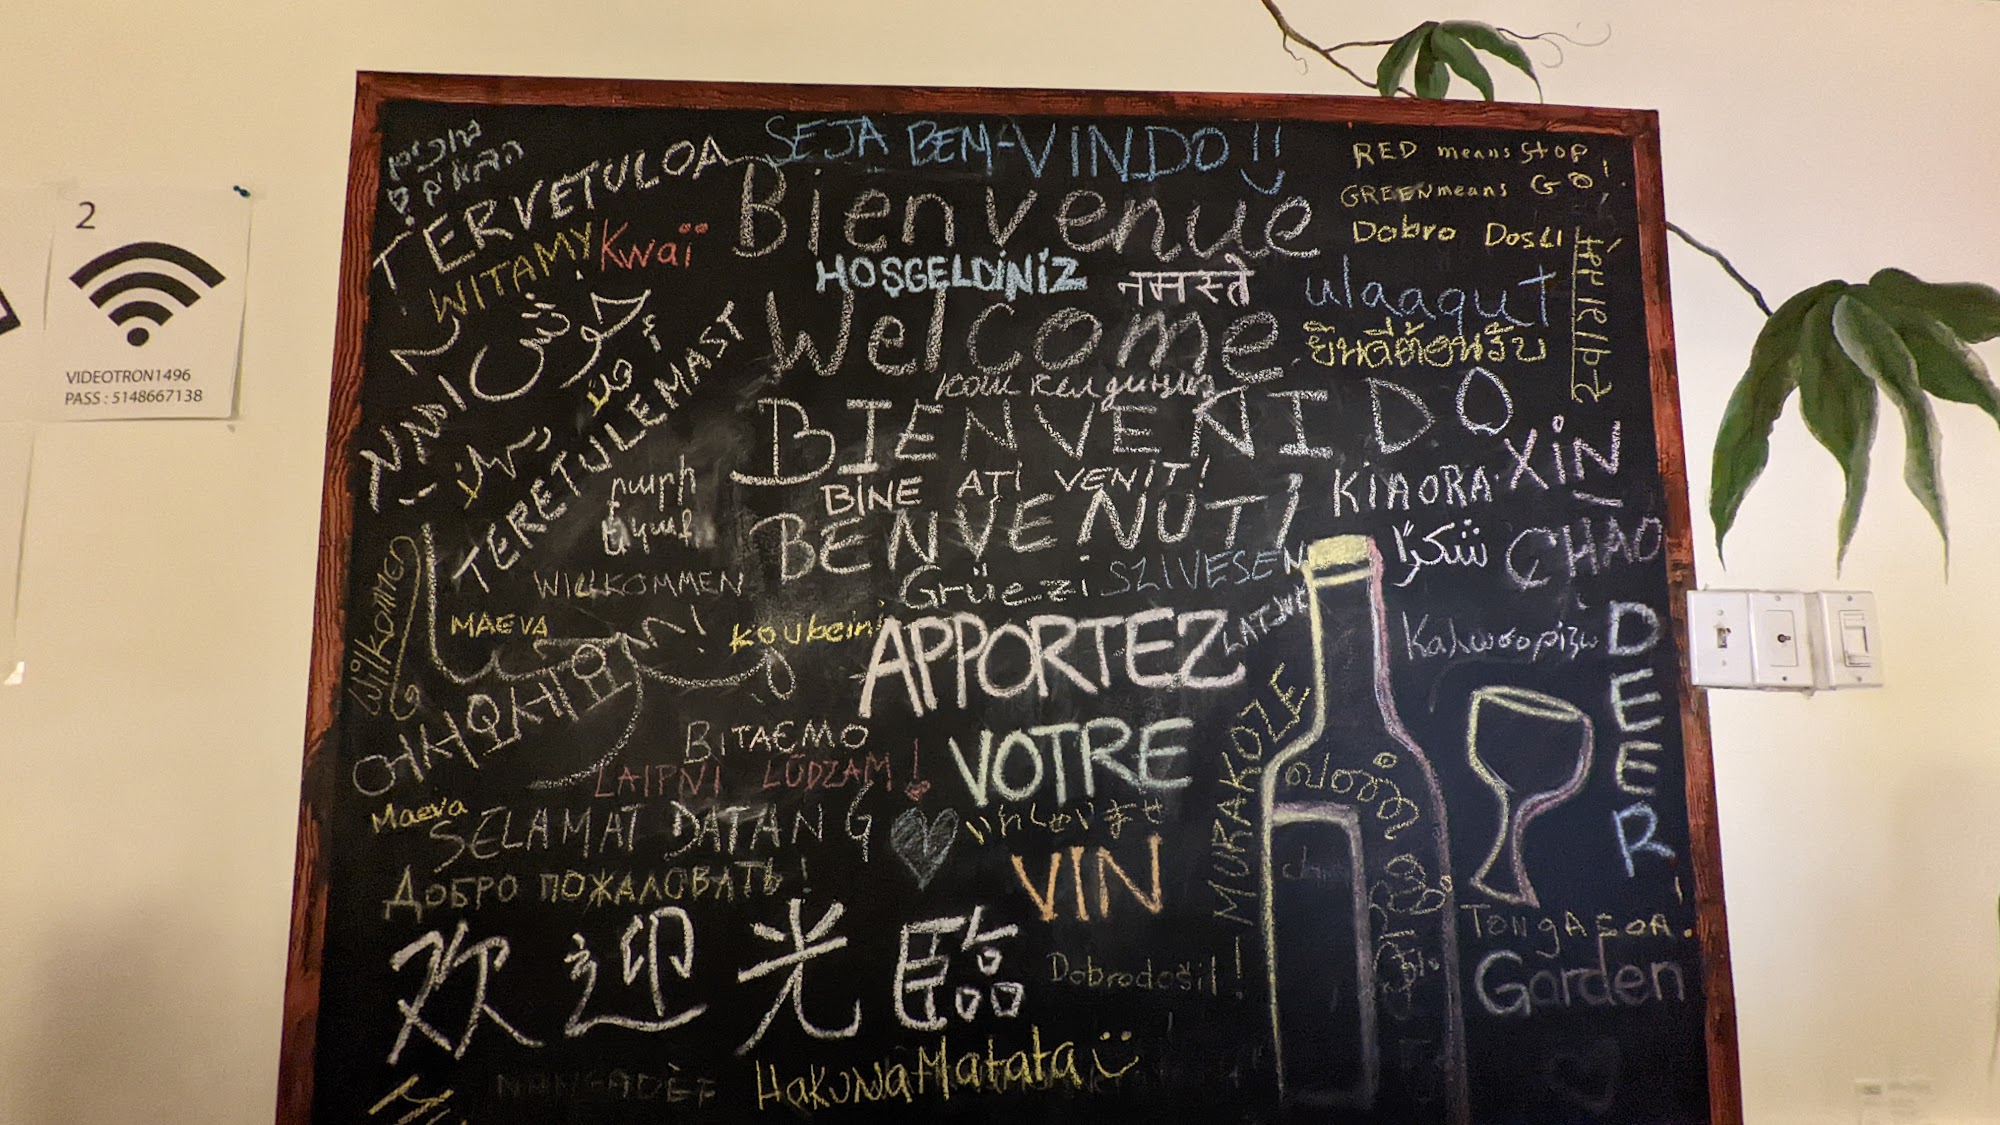 2
VIDEOTRON1496
PASS : 5148667138
ברוכים
הבאים
TERVETULOA
WITAMY
Kwaï
SEJA BEM-VINDO!!
Bienvenue
HOŞGELDİNİZ
नमस्ते
Welcome
кош келдиңиз
BIENVENIDO
BINE AȚI VENIT!
BENVENUTI
Grüezi
SZIVESEN
RED means STOP
GREEN means GO!
Dobro Dosli
ulaaqut
ยินดีต้อนรับ
KIAORA
XIN
CHÀO
شكراً
Καλωσορίζω
TERETULEMAST
բարի
WILLKOMMEN
MAEVA
Koubein
APPORTEZ
VOTRE
VIN
LAIPNI LŪDZAM!
ВІТАЄМО
Maeva
SELAMAT DATANG
いらっしゃいませ
ДОБРО ПОЖАЛОВАТЬ!
欢迎光臨
Dobrodošil!
MURAKOZE
DEER
GARDEN
TONGASOA.
HakunaMatata